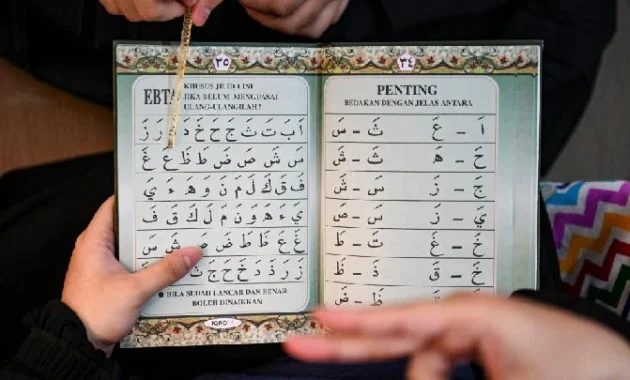 ٣٤
PENTING
BEDAKAN DENGAN JELAS ANTARA
اَ – عَ ثَ – سَ
حَ – هَ ثَ – شَ
جَ – زَ سَ – شَ
يَ – زَ سَ – صَ
خَ – غَ تَ – طَ
خَ – قَ ذَ – ظَ
ظَ – ضَ
٣٥
EBTA
KHUSUS JILID 1 INI
JIKA BELUM MENGUASAI
ULANG-ULANGILAH !
اَ بَ تَ ثَ جَ حَ خَ دَ ذَ رَ زَ
سَ شَ صَ ضَ طَ ظَ عَ غَ
فَ قَ كَ لَ مَ نَ وَ هَ ءَ يَ
يَ ءَ هَ وَ نَ مَ لَ كَ قَ فَ
غَ عَ ظَ طَ ضَ صَ شَ سَ
زَ رَ ذَ دَ خَ حَ جَ ثَ
● BILA SUDAH LANCAR DAN BENAR
BOLEH DINAIKKAN
IQRO